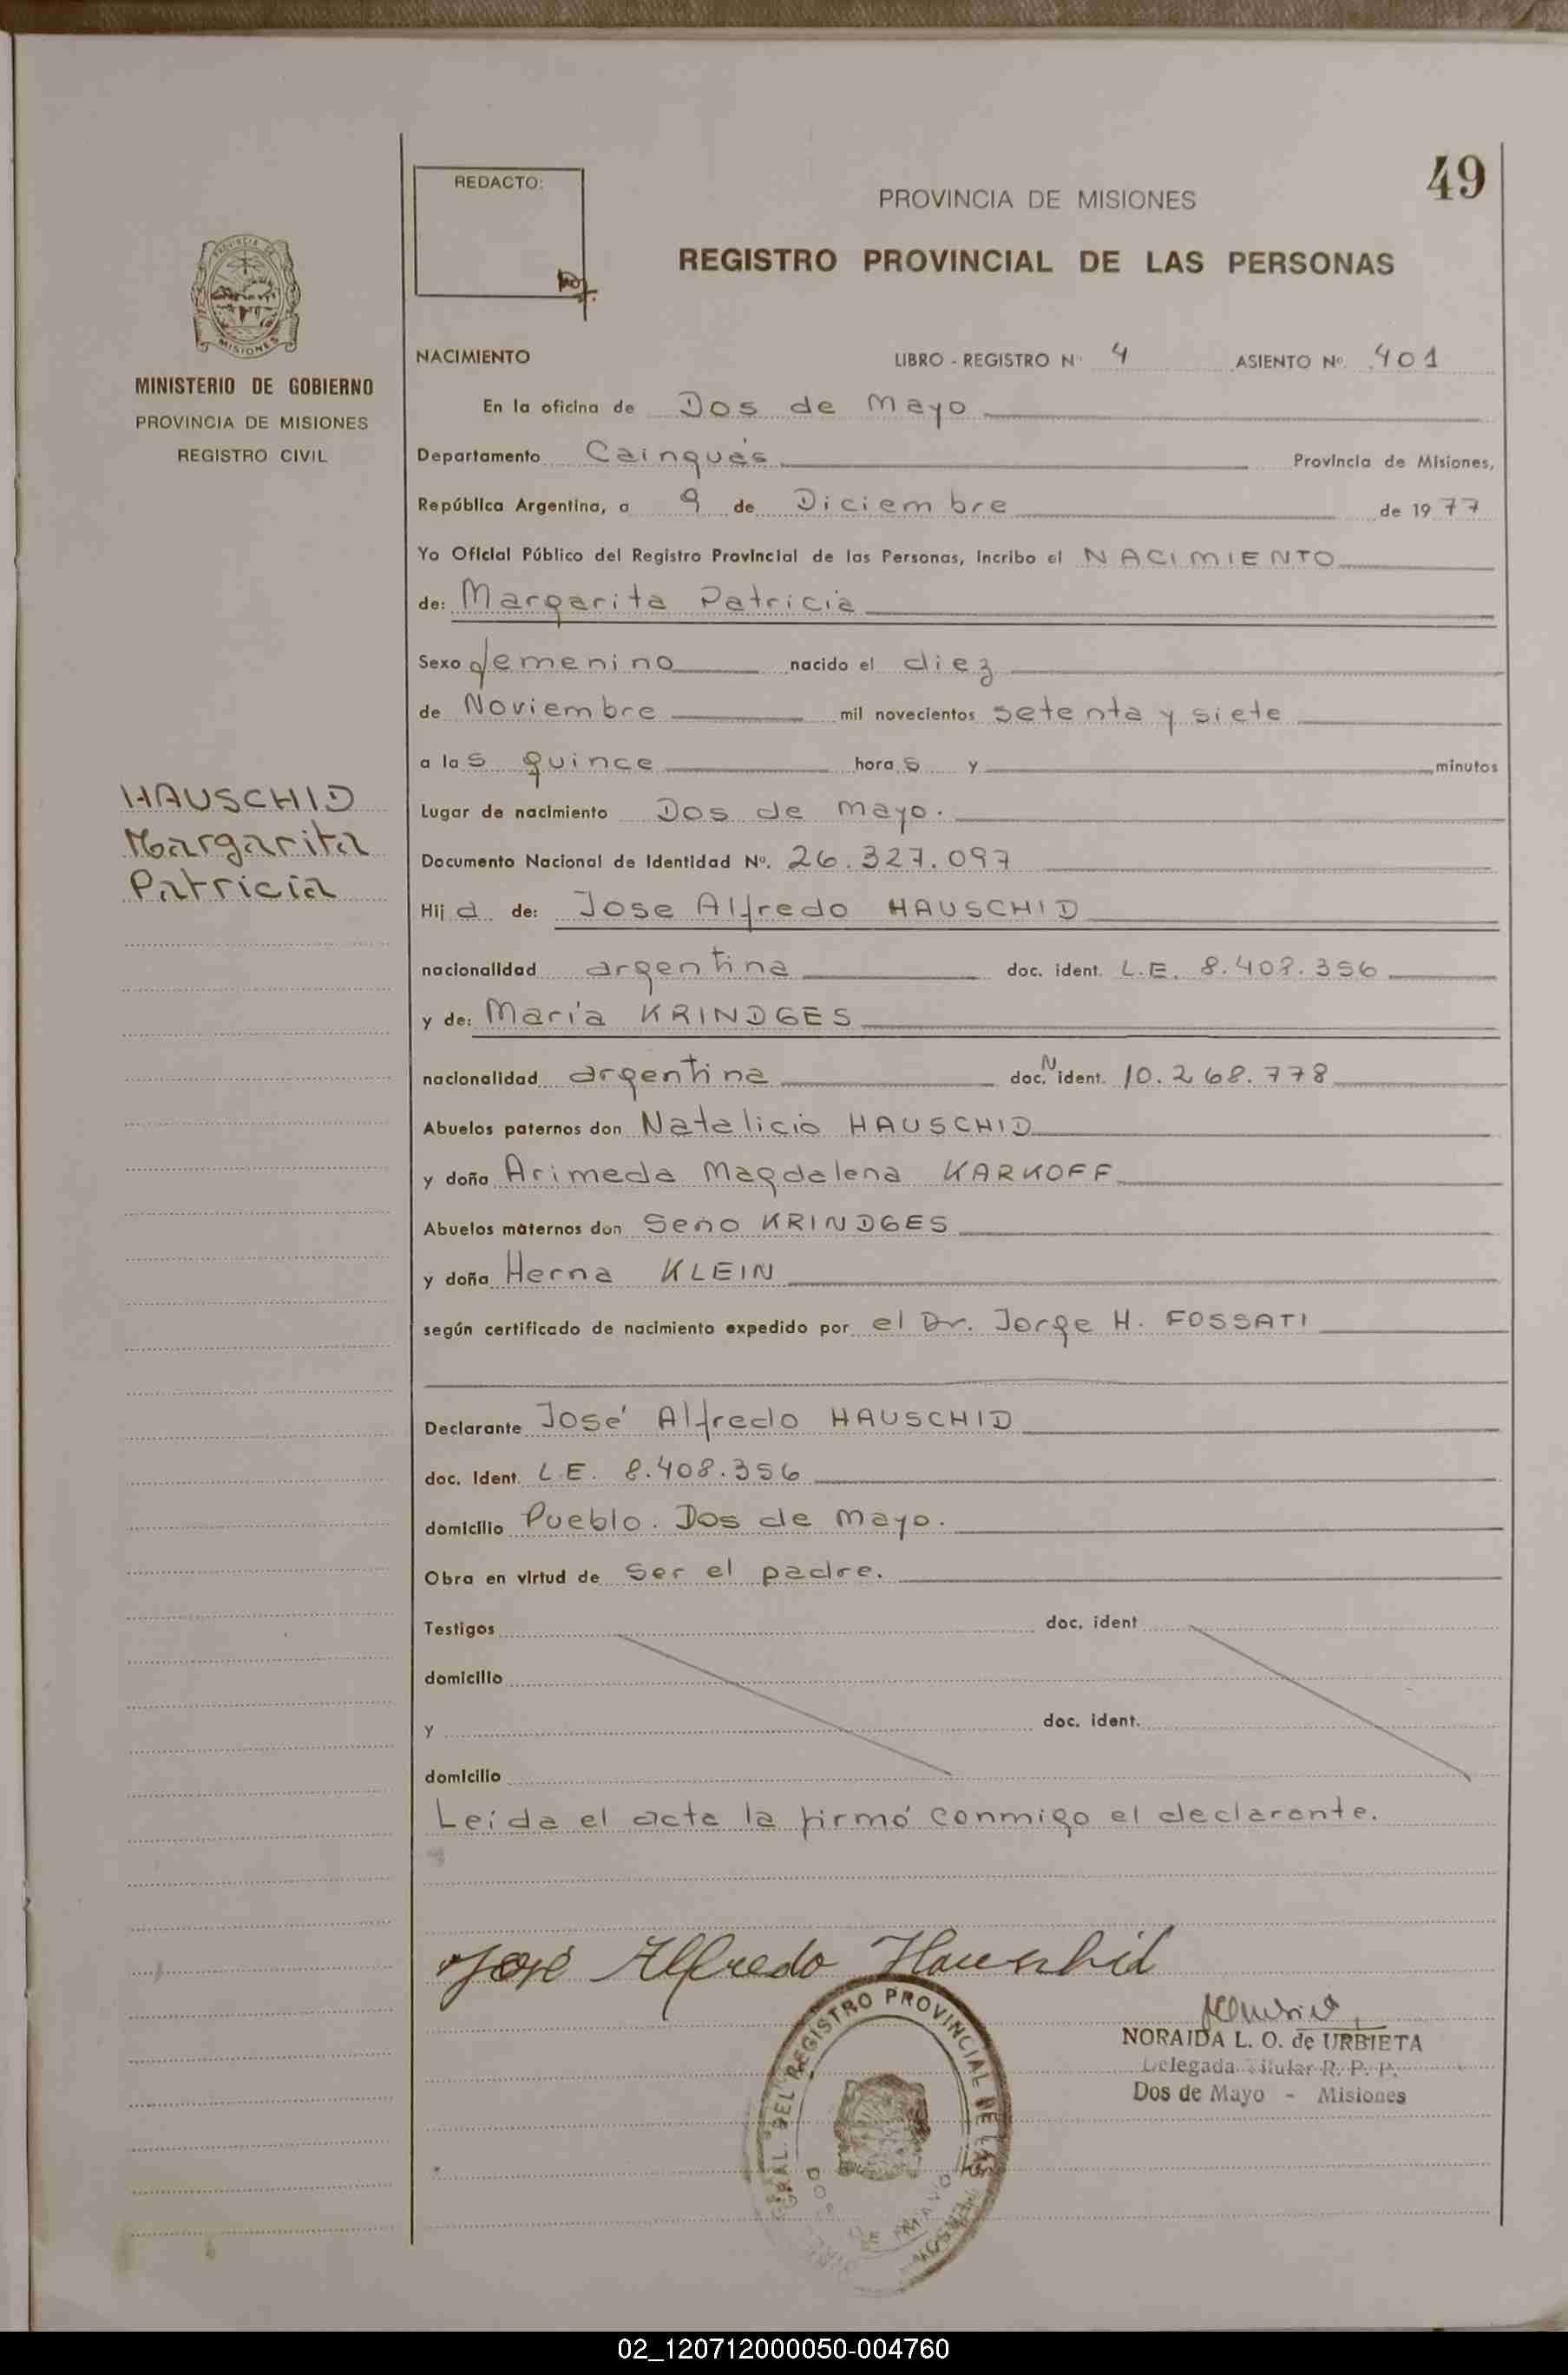 49
REDACTO:
PROVINCIA DE MISIONES
REGISTRO PROVINCIAL DE LAS PERSONAS
PROVINCIA DE
MISIONES
MINISTERIO DE GOBIERNO
PROVINCIA DE MISIONES
REGISTRO CIVIL
HAUSCHID
Margarita
Patricia
NACIMIENTO LIBRO - REGISTRO Nº 4 ASIENTO Nº 401
En la oficina de Dos de Mayo
Departamento Cainguás Provincia de Misiones,
República Argentina, a 9 de Diciembre de 1977
Yo Oficial Público del Registro Provincial de las Personas, incribo el NACIMIENTO
de: Margarita Patricia
Sexo femenino nacido el diez
de Noviembre mil novecientos setenta y siete
a las quince horas y minutos
Lugar de nacimiento Dos de Mayo.
Documento Nacional de Identidad Nº. 26.327.097
Hija de: Jose Alfredo HAUSCHID
nacionalidad argentina doc. ident. L.E. 8.408.356
y de: María KRINDGES
nacionalidad argentina doc. N ident. 10.268.778
Abuelos paternos don Natalicio HAUSCHID
y doña Arimeda Magdalena KARKOFF
Abuelos maternos don Seno KRINDGES
y doña Herna KLEIN
según certificado de nacimiento expedido por el Dr. Jorge H. FOSSATI
Declarante José Alfredo HAUSCHID
doc. Ident. L.E. 8.408.356
domicilio Pueblo. Dos de Mayo.
Obra en virtud de ser el padre.
Testigos doc. ident
domicilio
y doc. ident.
domicilio
Leída el acta la firmó conmigo el declarante.
José Alfredo Hauschid
NORAIDA L. O. de URBIETA
Delegada Titular R. P. P.
Dos de Mayo - Misiones
GRAL. DEL REGISTRO PROVINCIAL DE LAS PERSON
DOS DE MAYO
02_120712000050-004760